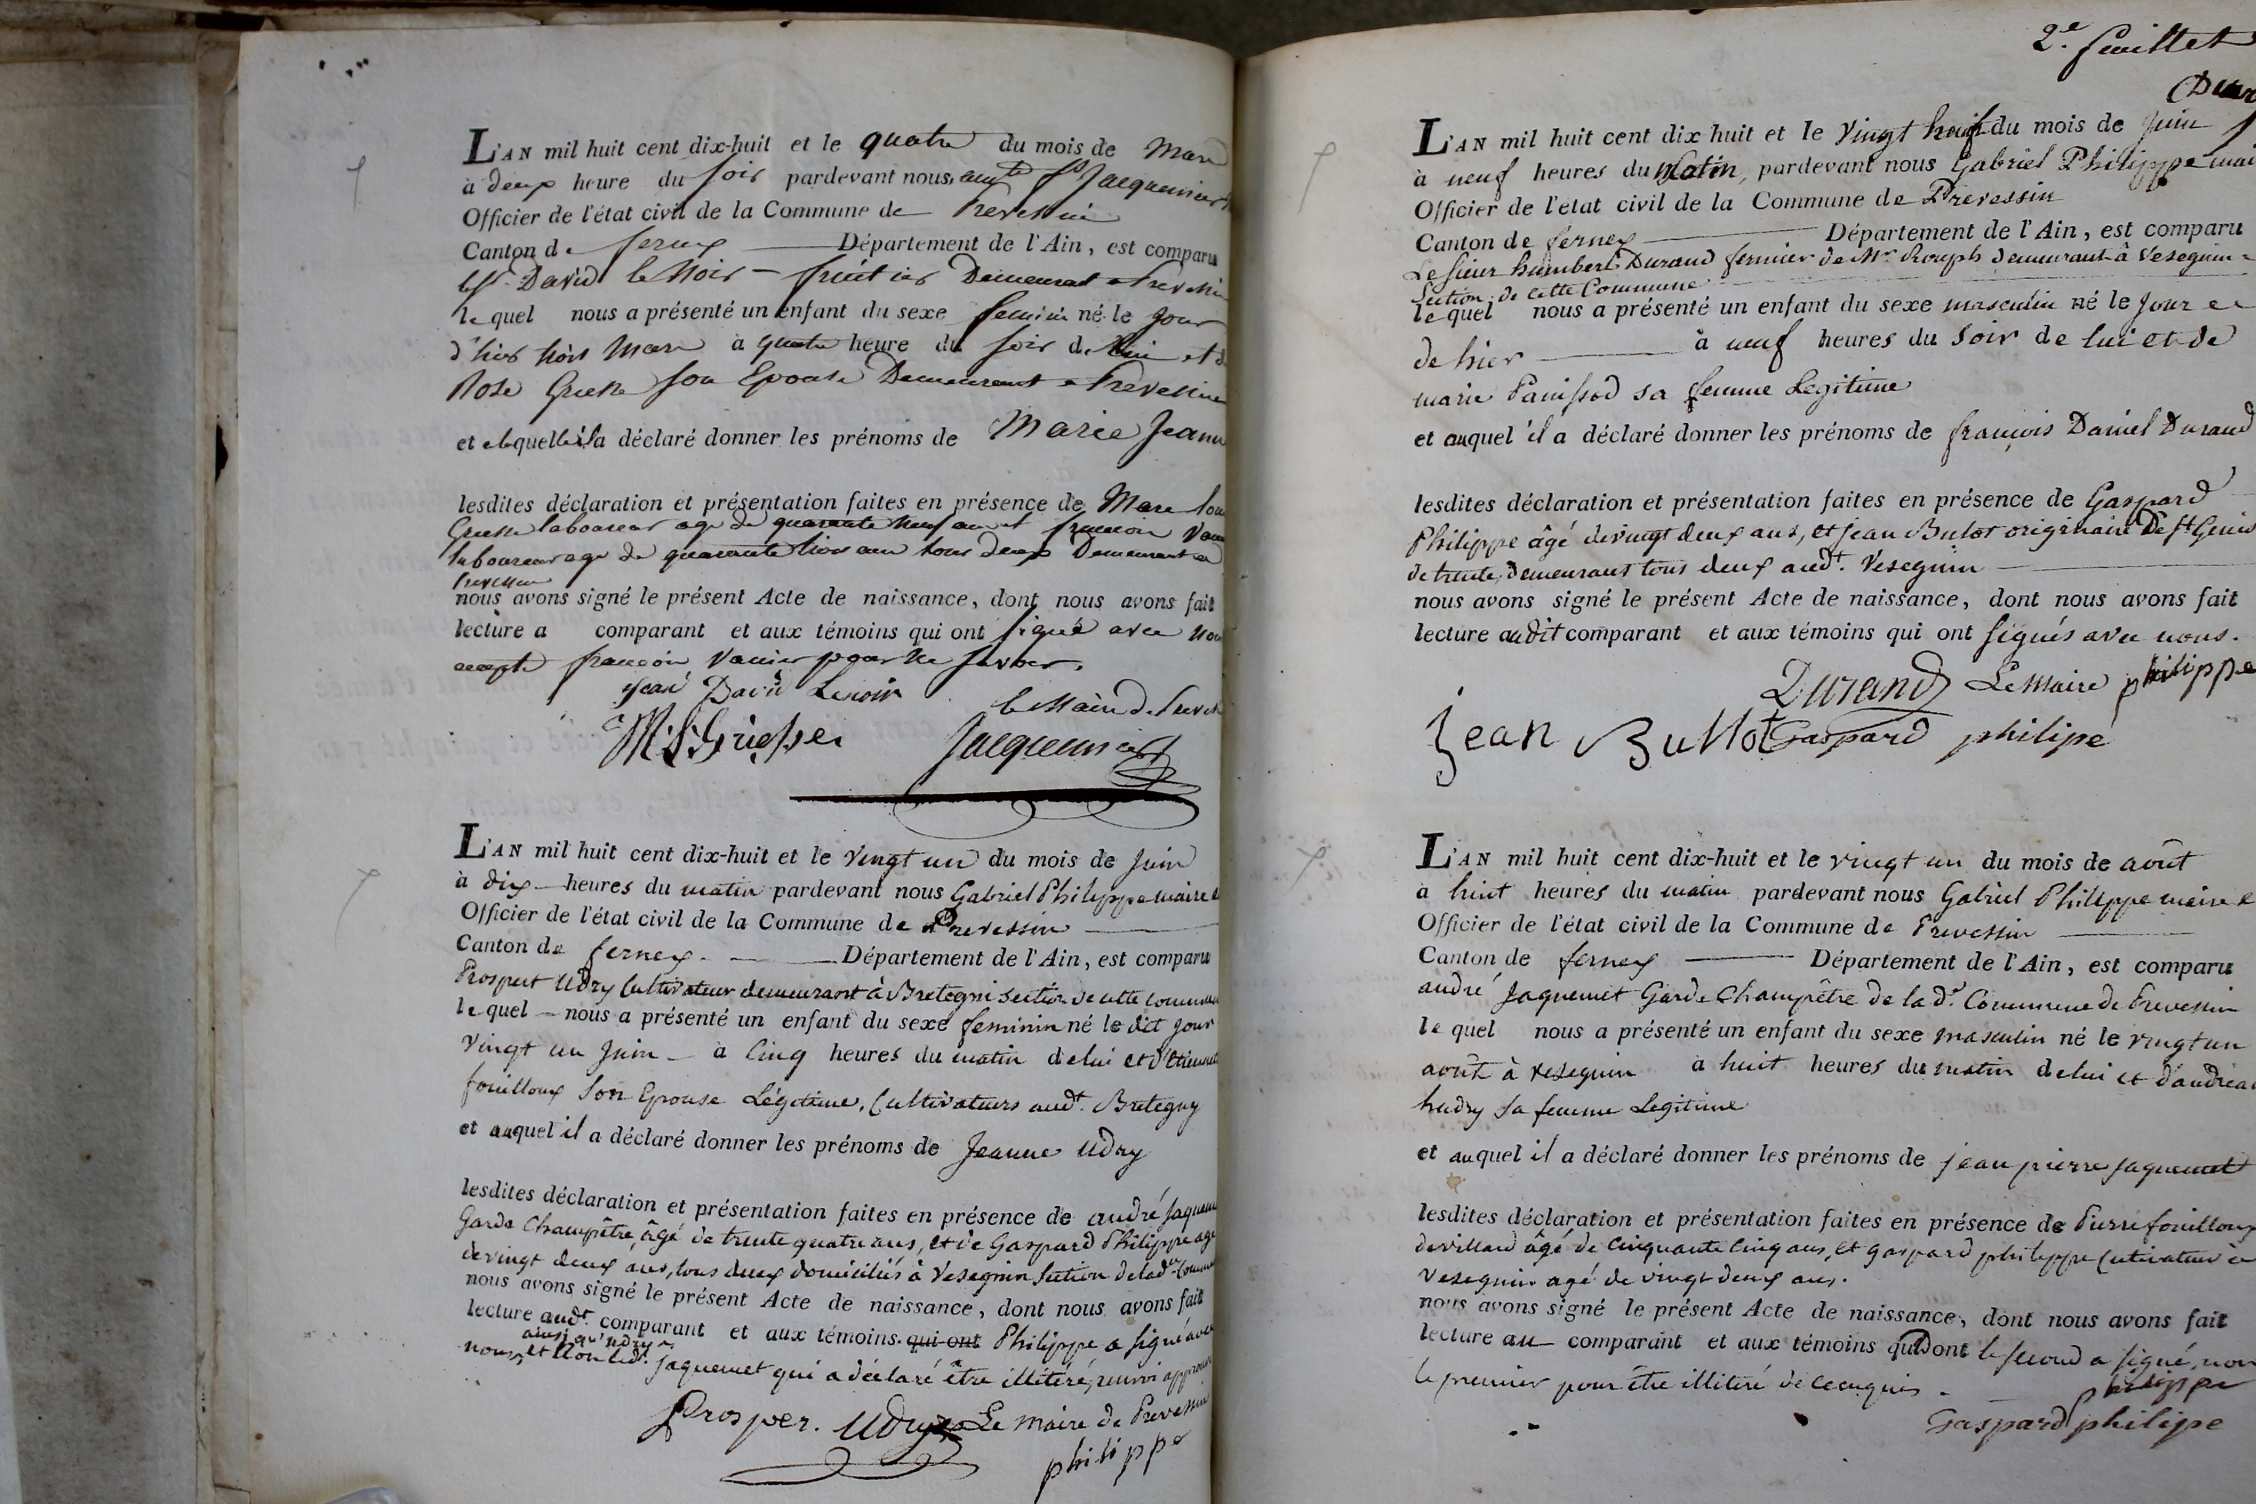 L'AN mil huit cent dix-huit et le quatre du mois de Mars
à deux heure du soir pardevant nous Jacquemier
Officier de l'état civil de la Commune de Prevessin
Canton de ferney Département de l'Ain, est comparu
David le Noir fruitier Demeurant a Prevessin
lequel nous a présenté un enfant du sexe feminin né le jour
d'hier trois Mars à quatre heure du soir de lui et de
Rose Griesse son Epouse Demeurant a Prevessin
et a laquelle il a déclaré donner les prénoms de Marie Jeanne
lesdites déclaration et présentation faites en présence de Marc Lou
Griesse laboureur age de quarante neuf an et francois Vanier
laboureur age de quarante trois ans tous deux Demeurant a
Prevessin
nous avons signé le présent Acte de naissance, dont nous avons fait
lecture a comparant et aux témoins qui ont signé avec nous
excepté francois Vanier pour ne savoir.
Jean David Lenoir
le Maire de Preves
M. L. Griesse Jacquemier
L'AN mil huit cent dix-huit et le vingt un du mois de Juin
à dix heures du matin pardevant nous Gabriel Philippe maire &
Officier de l'état civil de la Commune de Prevessin
Canton de ferney Département de l'Ain, est comparu
Prosper Udry Cultivateur demeurant à Bretegni Section de cette commune
lequel nous a présenté un enfant du sexe feminin né le dit jour
vingt un Juin à Cinq heures du matin de lui et d'Etiennet
fouilloux son Epouse Légitime, Cultivateurs audt. Bretegny
et auquel il a déclaré donner les prénoms de Jeanne Udry
lesdites déclaration et présentation faites en présence de andré Jaquemet
Garde Champêtre, âgé de trente quatre ans, et de Gaspard Philippe agé
de vingt deux ans, tous deux domiciliés à Vesegnin Section de lade. Commune
nous avons signé le présent Acte de naissance, dont nous avons fait
lecture audt. comparant et aux témoins. qui ont Philippe a signé avec
ainsi qu'udry
nous, et non ledt. Jaquemet qui a déclaré être illitéré, renvoi approuvé
Prosper. Udry Le Maire de Prevessin
philippe
2e. feuillet
L'AN mil huit cent dix huit et le Vingt huit du mois de Juin
à neuf heures du Matin, pardevant nous Gabriel Philippe mai
Officier de l'état civil de la Commune de Prevessin
Canton de ferney Département de l'Ain, est comparu
Le sieur humbert Durand fermier de Mr. Rouph demeurant à Vesegnin
Section de cette Commune
lequel nous a présenté un enfant du sexe masculin né le Jour
de hier à neuf heures du Soir de lui et de
marie Panissod sa femme Legitime
et auquel il a déclaré donner les prénoms de françois Daniel Durand
lesdites déclaration et présentation faites en présence de Gaspard
Philippe âgé de vingt deux ans, et jean Bulot originaire De St. Genis
de trente, demeurant tous deux audt. Vesegnin
nous avons signé le présent Acte de naissance, dont nous avons fait
lecture audit comparant et aux témoins qui ont signés avec nous.
Durand Le Maire philippe
jean Bullot Gaspard philipe
L'AN mil huit cent dix-huit et le vingt un du mois de août
à huit heures du matin pardevant nous Gabriel Philippe maire &
Officier de l'état civil de la Commune de Prevessin
Canton de ferney Département de l'Ain, est comparu
andré Jaquemet Garde Champêtre de la de. Commune de Prevessin
lequel nous a présenté un enfant du sexe masculin né le vingt un
août à Vesegnin à huit heures du matin de lui et d'andréa
hudry sa femme Legitime
et auquel il a déclaré donner les prénoms de jean pierre jaquemet
lesdites déclaration et présentation faites en présence de Pierre fouilloux
devillard âgé de Cinquante Cinq ans, et gaspard philippe Cultivateur à
Vesegnin agé de vingt deux ans.
nous avons signé le présent Acte de naissance, dont nous avons fait
lecture au comparant et aux témoins dont le second a signé, non
le premier pour être illitéré de ce enquis.
philippe
Gaspard philipe